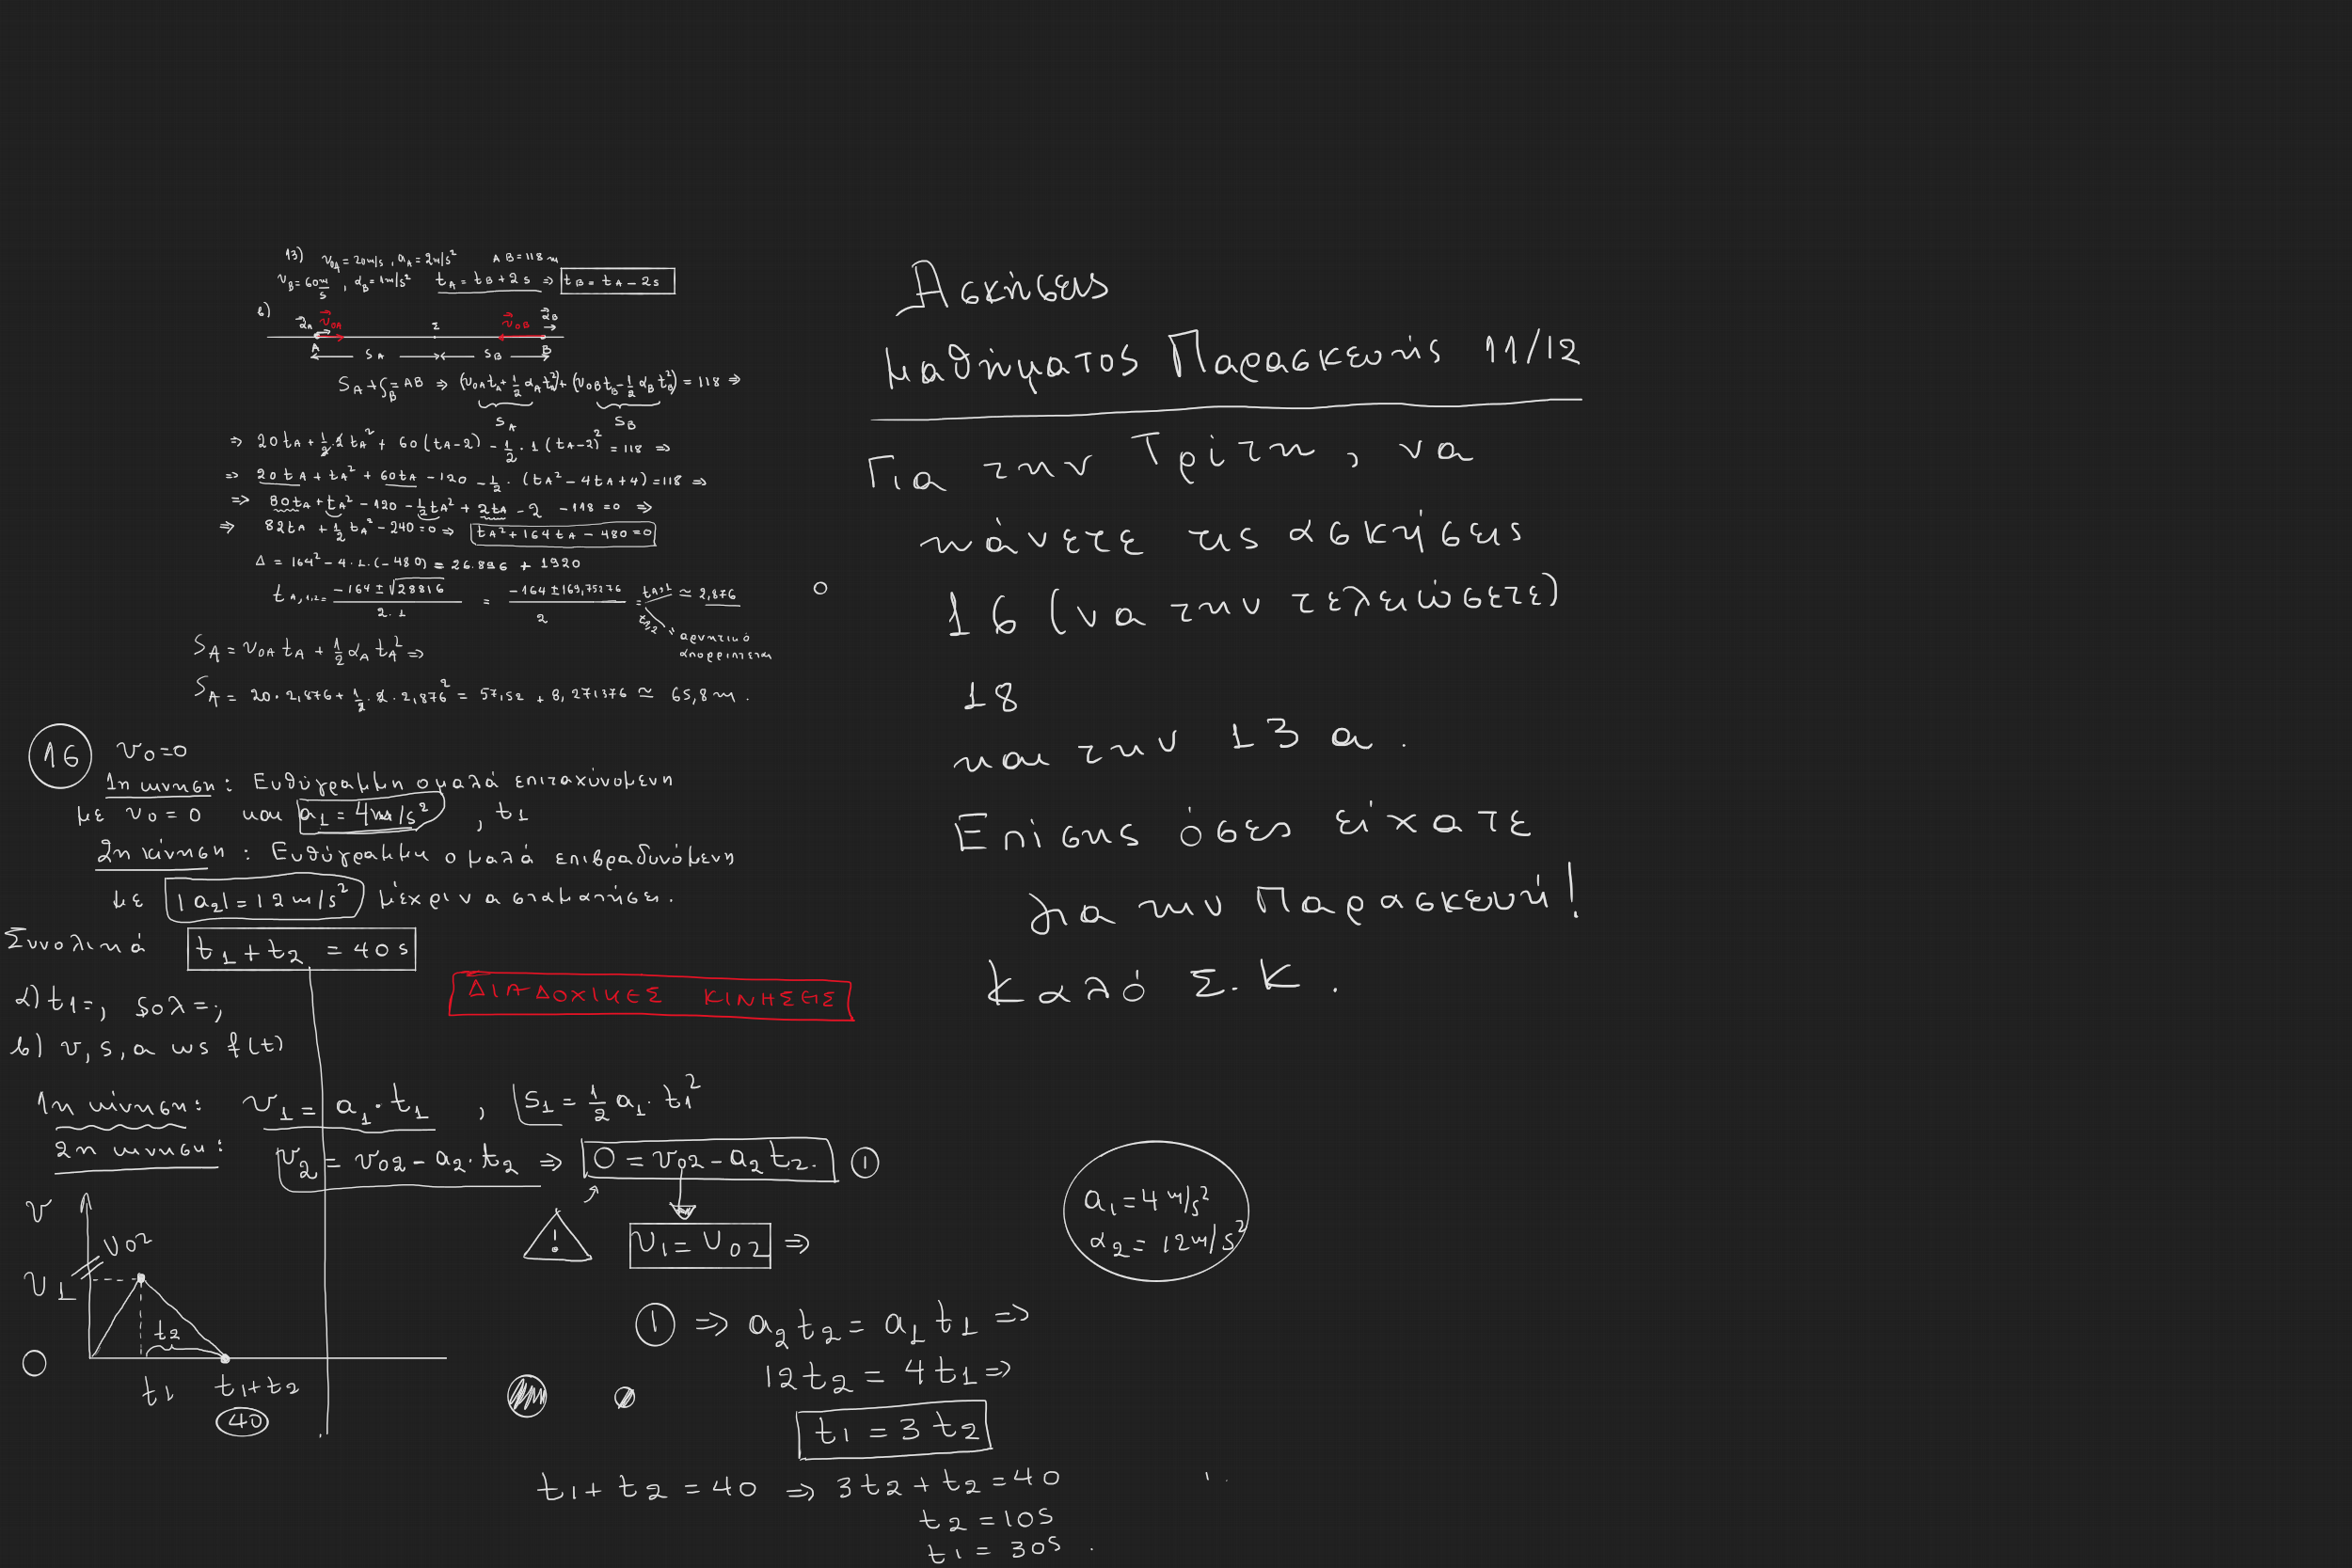 13) v₀A = 20m/s, a_A = 2m/s² AB = 118 m
v_B = 60 m/s, α_B = 1m/s² t_A = t_B + 2s ⇒ t_B = t_A - 2s
β)
α_A v₀A Σ v₀B α_B
A S_A S_B B
S_A + S_B = AB ⇒ (v₀A t_A + 1/2 α_A t_A²) + (v₀B t_B - 1/2 α_B t_B²) = 118 ⇒
S_A S_B
⇒ 20t_A + 1/2·2 t_A² + 60(t_A-2) - 1/2·1(t_A-2)² = 118 ⇒
⇒ 20t_A + t_A² + 60t_A - 120 - 1/2·(t_A² - 4t_A + 4) = 118 ⇒
⇒ 80t_A + t_A² - 120 - 1/2 t_A² + 2t_A - 2 - 118 = 0 ⇒
⇒ 82t_A + 1/2 t_A² - 240 = 0 ⇒ t_A² + 164t_A - 480 = 0
Δ = 164² - 4·1·(-480) = 26.896 + 1920
t_A,1,2 = (-164 ± √28816)/(2·1) = (-164 ± 169,75276)/2 = t_A,1 ≃ 2,876
t_A,2 = αρνητικό
απορρίπτεται
S_A = v₀A t_A + 1/2 α_A t_A² ⇒
S_A = 20·2,876 + 1/2·2·2,876² = 57,52 + 8,271376 ≃ 65,8 m.
16 v₀=0
1η κινηση: Ευθύγραμμη ομαλά επιταχύνομενη
με v₀ = 0 και a₁ = 4m/s², t₁
2η κίνηση: Ευθύγραμμη ομαλά επιβραδυνόμενη
με |a₂| = 12m/s² μέχρι να σταματήσει.
Συνολικά t₁ + t₂ = 40s
α) t₁=; Sολ=;
β) v, s, a ως f(t)
ΔΙΑΔΟΧΙΚΕΣ ΚΙΝΗΣΕΙΣ
1η κίνηση: v₁ = a₁·t₁, S₁ = 1/2 a₁·t₁²
2η κινηση: v₂ = v₀₂ - a₂·t₂ ⇒ 0 = v₀₂ - a₂t₂. ①
! v₁ = v₀₂ ⇒
v
v₀₂
v₁
t₂
0 t₁ t₁+t₂
40
① ⇒ a₂t₂ = a₁t₁ ⇒
12t₂ = 4t₁ ⇒
t₁ = 3t₂
t₁ + t₂ = 40 ⇒ 3t₂ + t₂ = 40
t₂ = 10s
t₁ = 30s.
a₁ = 4 m/s²
α₂ = 12m/s²
Ασκήσεις
μαθήματος Παρασκευής 11/12
Για την Τρίτη, να
κάνετε τις ασκήσεις
16 (να την τελειώσετε)
18
και την 13 α.
Επίσης όσες είχατε
για την Παρασκευή!
Καλό Σ.Κ.